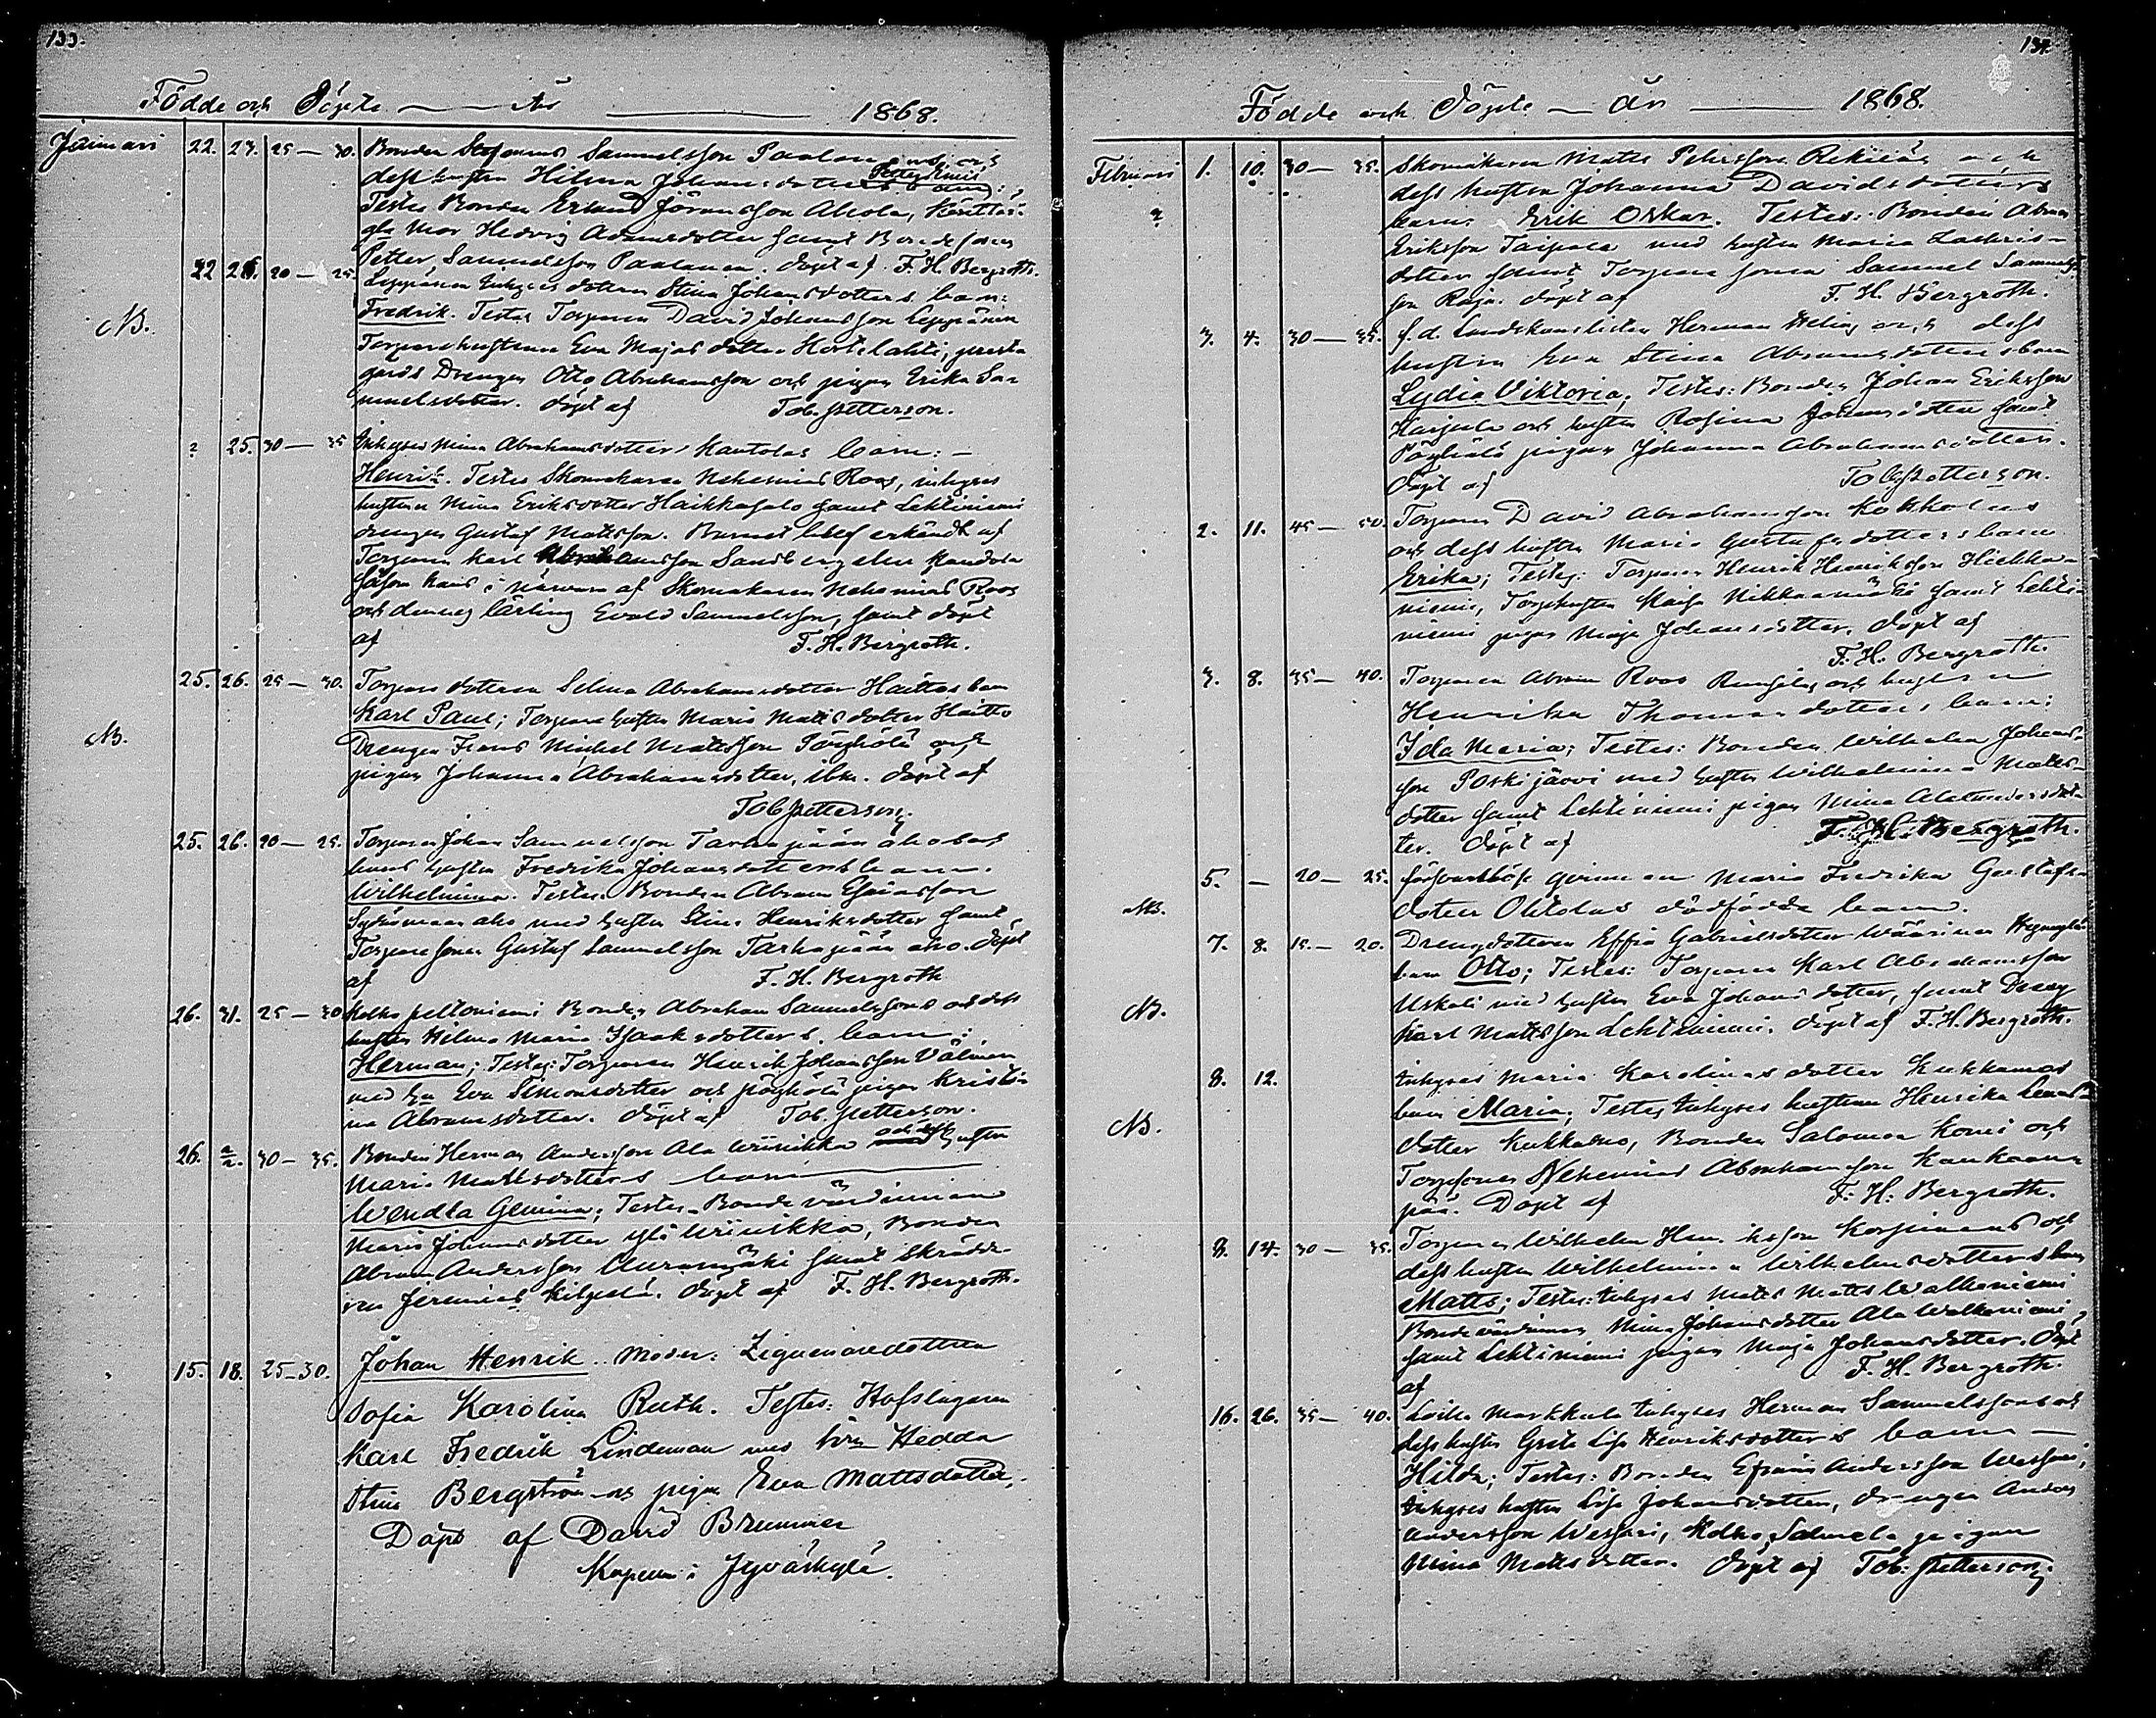 133.
Födde och Döpte — År — 1868.
Januari 22. 23. 25 — 30. Bonden Samuelsson Paalanens och
dess hustru Hilma Johansdotters barn:
Testes Bonden Erland Göransson Ahola,
mor Hedvig Adamsdotter samt Bondesonen
Petter Samuelsson Paalanen. döpt af F. H. Bergroth.
NB. 22 20 — 25. Leppänen Inhyses dottern Stina Johansdotters barn:
Fredrik. Testes Torparen David Johansson Leppänen
Torparehustrun Eva Majas dotter Hortelahti, prest
gårds Drengen Otto Abrahamsson och pigan Erika Sa-
muelsdotter. döpt af Tob. Petterson.
? 25. 30 — 35 Inhyses Mina Abrahamsdotter Kantolas barn: —
Henrik. Testes Skomakaren Nehemias Roos, inhyses
hustrun Mina Eriksdotter Haikkasalo samt Lehtiniemi
drengen Gustaf Mattsson. Barnet blef erkändt af
Torparen Karl Abrahamsson Sandberg eller Kandola
såsom hans i närvaro af Skomakaren Nehemias Roos
och dennes lärling Evald Samuelsson, samt döpt
af F. H. Bergroth.
NB. 25. 26. 25 — 30. Torpare dottern Selma Abrahamsdotter Haittos barn
Karl Paul; Torpare hustrun Maria Mattsdotter Haitto
Drengen Frans Michel Mattsson Pöyhölä och
pigan Johanna Abrahamsdotter, ibm. döpt af
Tob Petterson.
25. 26. 20 — 25. Torparen Johan Samuelsson Tarhapäänaho och
hans hustru Fredrika Johansdotters barn.
Wilhelmina. Testes Bonden Abram Esaiasson
Sydänmaanaho med hustru Stina Henriksdotter samt
Torparesonen Gustaf Samuelsson Tarhapäänaho. döpt
af F. H. Bergroth
26. 31. 25 — 30 Kolho peltoniemi Bonden Abraham Samuelssons och dess
hustru Hilma Maria Isaaksdotters barn:
Herman; Testes: Torparen Henrik Johansson Välimaa
med hu Eva Simonsdotter och Pöyhölä pigan Kristi-
na Abramsdotter. döpt af Tob. Petterson.
26. 2/2. 30 — 35. Bonden Herman Andersson Ala Wiinikka och dess hustru
Maria Mattsdotters barn
Wendla Gemina; Testes Bonde värdinnan
Maria Johansdotter Yli Wiinikka, Bonden
Abram Andersson Auranmäki samt Skrädda-
ren Jeremias Kilpelä. döpt af F. H. Bergroth.
15. 18. 25–30. Johan Henrik. Moder: Zigenaredottern
Sofia Karolina Ruth. Testes: Hofslagaren
Karl Fredrik Lindeman med Hedda
Stina Bergström och pigan Eva Mattsdotter.
Döpt af David Brunnier
Kapellan i Jyväskylä.
134.
Födde och Döpte — År — 1868.
Februari 1. 10. 30 — 35. Skomakaren Matts Petersson och
dess hustru Johanna Davidsdotters
barn. Erik Oskar. Testes: Bonden Abram
Eriksson Taipale med hustru Maria Zachris-
dotter samt Torpare sonen Samuel Samuels-
son Raja. döpt af F. H. Bergroth.
3. 4. 30 — 35. f. d. Landskanslisten Herman Helin och dess
hustru Eva Stina Abramsdotters barn
Lydia Viktoria; Testes: Bonden Johan Eriksson
och hustru Rosina Johansdotter samt
Pöyhölä pigan Johanna Abrahamsdotter.
Döpt af Tob. Petterson.
2. 11. 45 — 50. Torparen David Abrahamsson Kokkolas
och dess hustru Maria Gustafsdotters barn
Erika; Testes: Torparen Henrik Henriksson Hiekka-
niemi, Torpehustrun Kaisa Nikkamäki samt Lehti-
niemi pigan Maja Johansdotter, döpt af
F. H. Bergroth.
3. 8. 35 — 40. Torparen Abram Roos och hustrun
Henrika Thomasdotters barn:
Ida Maria; Testes: Bonden Wilhelm Johans-
son Poskijärvi med hustru Wilhelmina Matts-
dotter samt Lehtiniemi pigan Mina Alexandersdot-
ter. Döpt af F. H. Bergroth.
NB. 5. — 20 — 25. försvarslösa qvinnan Maria Fredrika Gustafs-
dotter dödfödda barn.
NB. 7. 8. 15. — 20. Drengdottern Effia Gabrielsdotter Wäärinen
barn Otto; Testes: Torparen Karl Abrahamsson
Uskali med hustru Eva Johansdotter, samt Dreng
Karl Mattsson Lehtiniemi. döpt af F. H. Bergroth.
NB. 8. 12. Inhyses Maria Karolinasdotter Kukkamas
barn Maria; Testes Inhyses hustrun Henrika
dotter Kukkasmo, Bonden Salomon Komi och
Torpsonen Nehemias Abrahamsson Kankaan
pää. Döpt af F. H. Bergroth.
8. 14. 30 — 35. Torparen Wilhelm Henriksson Korpinens och
dess hustru Wilhelmina Wilhelmsdotters barn
Matts; Testes: Inhyses Matts Matts Walkeniemi
Bondevärdinnan Mina Johansdotter Ala Walkeniemi
samt Lehtiniemi pigan Maja Johansdotter. Döpt
af F. H. Bergroth.
16. 26. 35 — 40. Loilo Markkula Inhyses Herman Samuelssons och
dess hustru Greta Lisa Henriksdotters barn —
Hilda; Testes: Bonden Efraim Andersson Wessari;
Inhyses hustru Lisa Johansdotter, drengen Anders
Andersson Wessari, Kolho Salmela pigan
Mina Mattsdotter. döpt af Tob: Petterson.